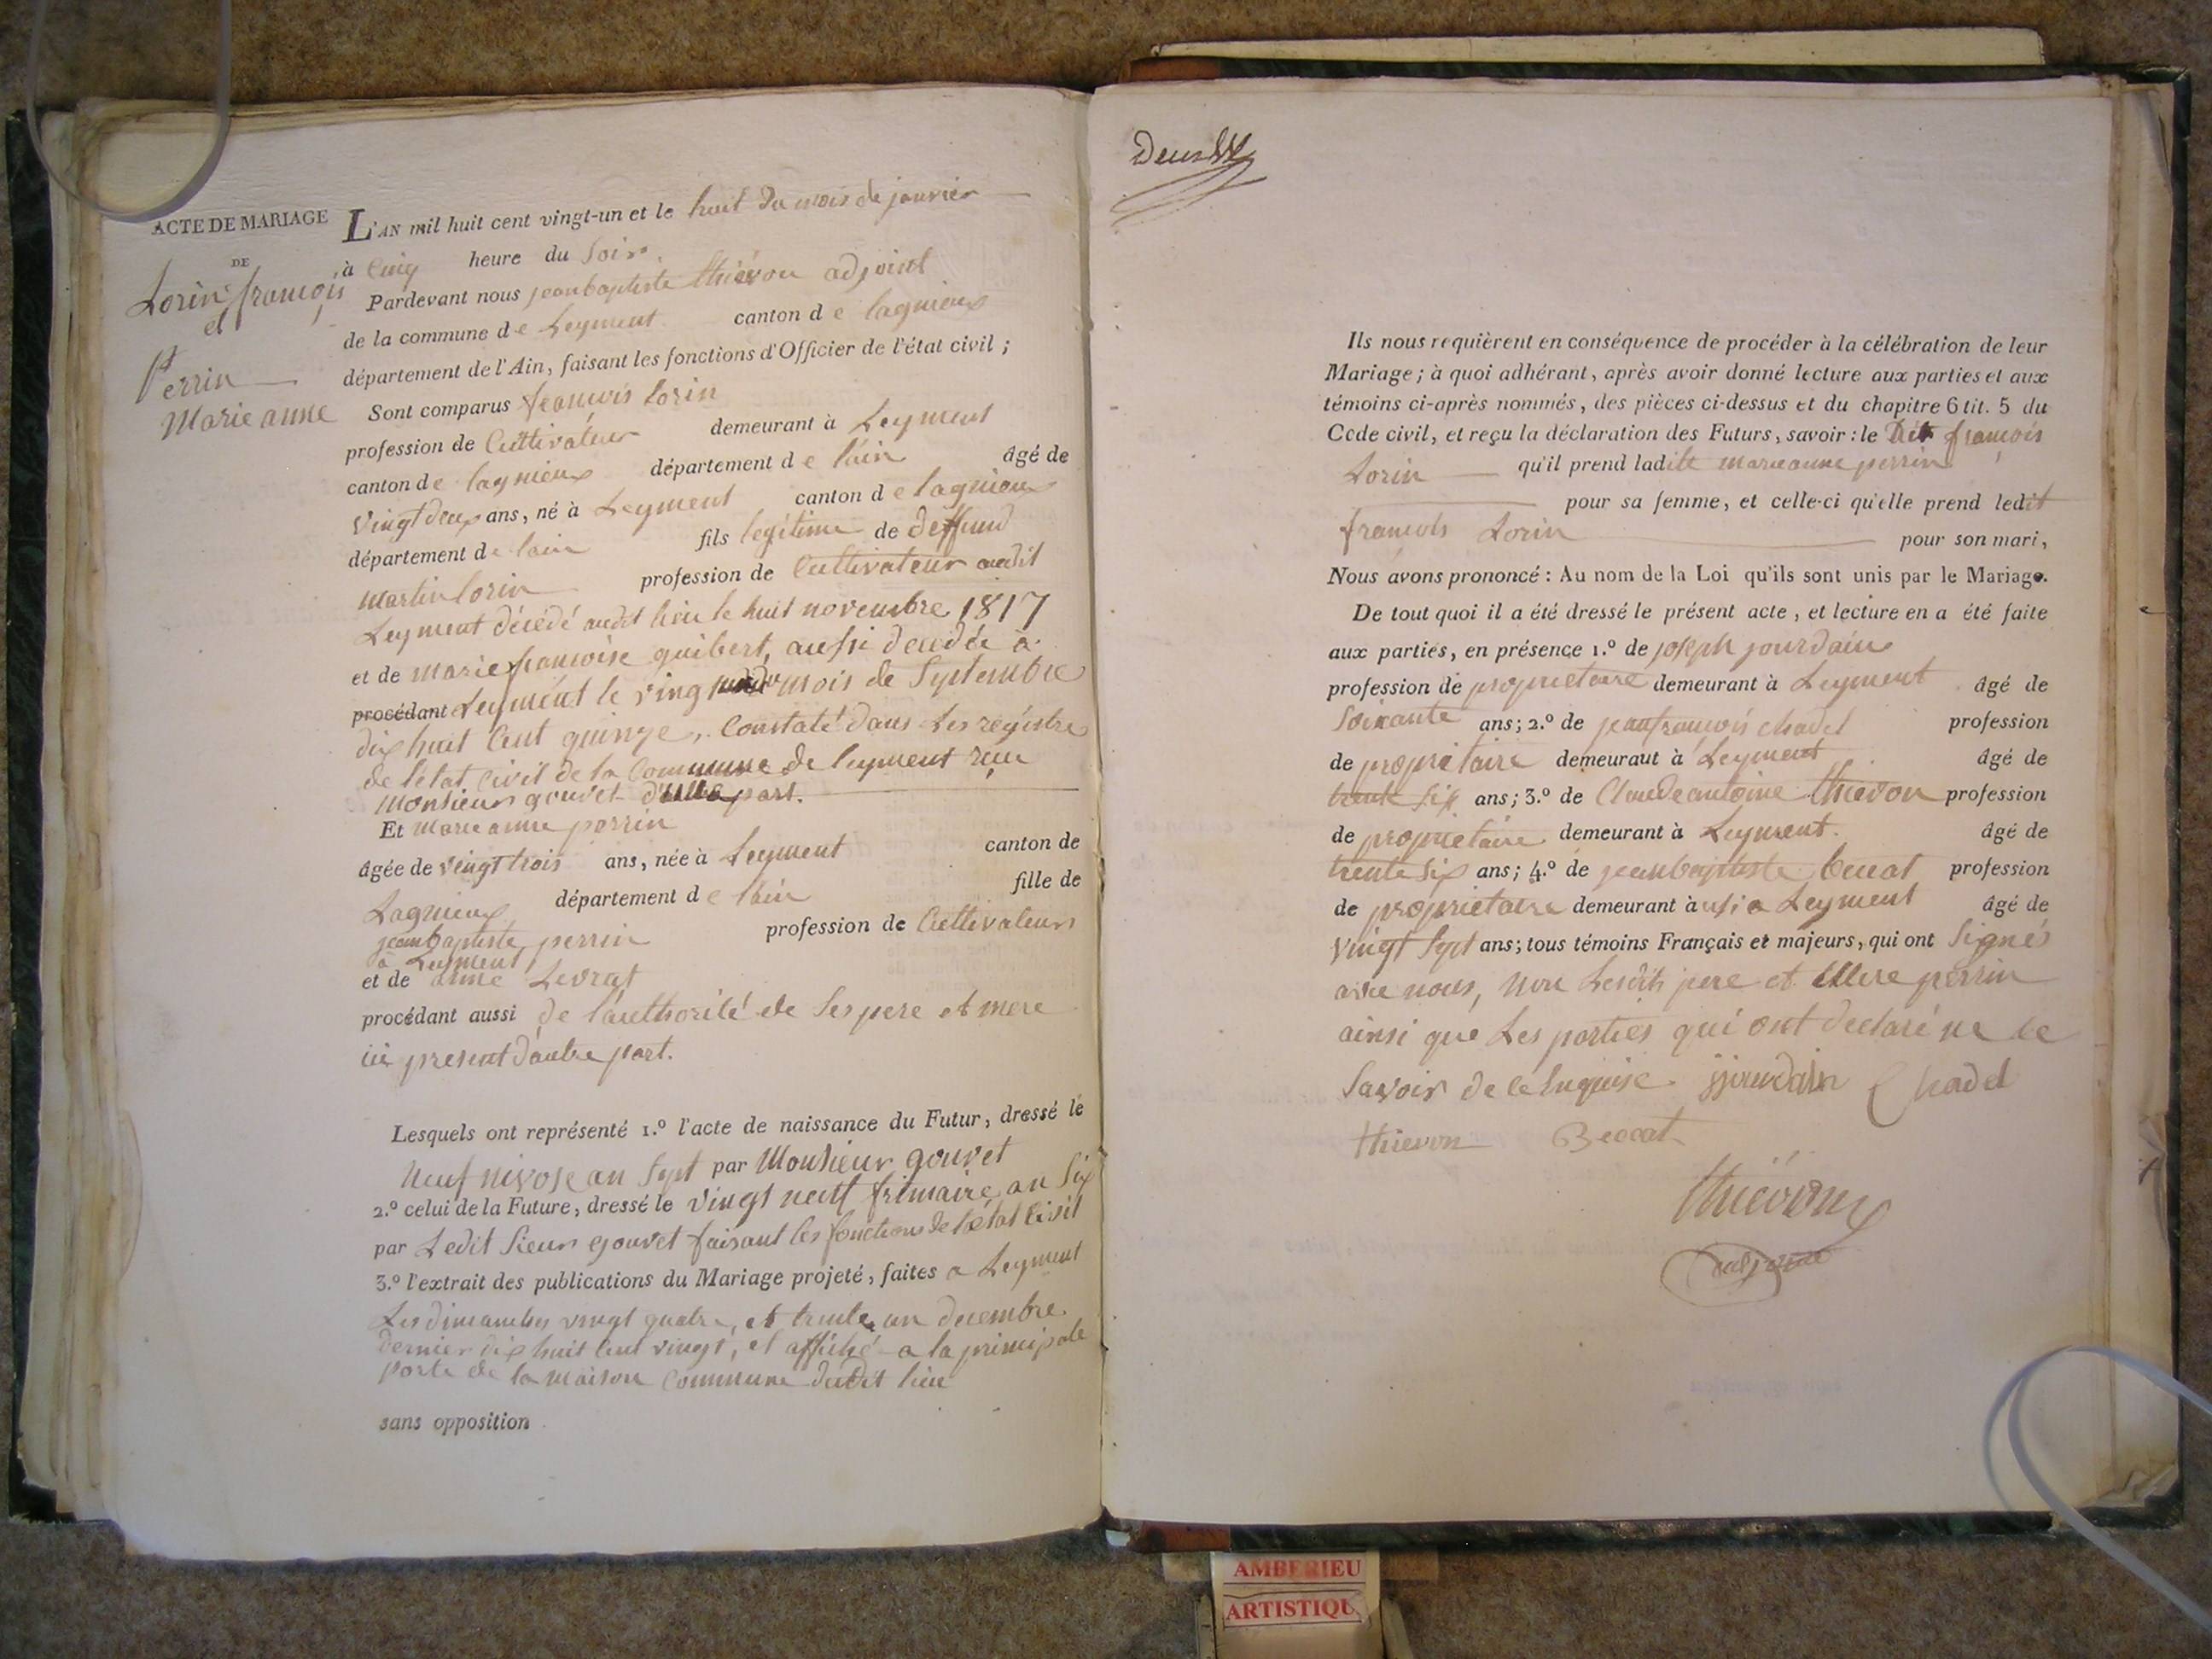 ACTE DE MARIAGE
DE
Lorin françois
et
Perrin
Marie anne
L'AN mil huit cent vingt-un et le huit du mois de janvier
à cinq heure du soir
Pardevant nous jeanbaptiste thiévon adjoint
de la commune de Leyment canton de lagnieux
département de l'Ain, faisant les fonctions d'Officier de l'état civil ;
Sont comparus françois Lorin
profession de Cultivateur demeurant à Leyment
canton de lagnieux département de l'ain âgé de
vingt deux ans, né à Leyment canton de lagnieux
département de lain fils legitime de deffund
martin lorin profession de Cultivateur audit
Leyment décédé audit lieu le huit novembre 1817
et de marie françoise guibert, aussi decedée à
procédant Leyment le vingt mois de Septembre
dix huit Cent quinze, Constaté dans Les registre
de l'état Civil de la Commune de leyment
Monsieur gouvet d'une part.
Et marie anne perrin
âgée de vingt trois ans, née à Leyment canton de
Lagnieux département de lain fille de
jeanbaptiste perrin profession de Cultivateur
à Leyment
et de anne Levrat
procédant aussi de l'authorité de Ses pere et mere
ici present d'autre part.
Lesquels ont représenté 1.º l'acte de naissance du Futur, dressé le
Neuf nivose an Sept par Monsieur gouvet
2.º celui de la Future, dressé le vingt neuf frimaire an Six
par Ledit Sieur gouvet faisant les fonctions de l'état Civil
3.º l'extrait des publications du Mariage projeté, faites a Leyment
Les dimanches vingt quatre, et trente un decembre
dernier dix huit Cent vingt, et affiché a la principale
porte de la maison Commune dudit lieu
sans opposition
Ils nous requièrent en conséquence de procéder à la célébration de leur
Mariage ; à quoi adhérant, après avoir donné lecture aux parties et aux
témoins ci-après nommés, des pièces ci-dessus et du chapitre 6 tit. 5 du
Code civil, et reçu la déclaration des Futurs, savoir : le dit françois
Lorin qu'il prend ladite marieanne perrin
pour sa femme, et celle-ci qu'elle prend ledit
françois Lorin pour son mari,
Nous avons prononcé : Au nom de la Loi qu'ils sont unis par le Mariage.
De tout quoi il a été dressé le présent acte, et lecture en a été faite
aux parties, en présence 1.º de joseph jourdain
profession de proprietaire demeurant à Leyment âgé de
Soixante ans ; 2.º de jeanfrançois chadel profession
de propriétaire demeurant à Leyment âgé de
trente six ans ; 3.º de Claudeantoine thievon profession
de proprietaire demeurant à Leyment. âgé de
trente six ans ; 4.º de jeanbaptiste beccat profession
de proprietaire demeurant à ussi a Leyment âgé de
vingt sept ans ; tous témoins Français et majeurs, qui ont signés
avec nous, non Lesdits pere et Mere perrin
ainsi que Les parties qui ont declaré ne le
Savoir de ce Enquise jjourdain Chadel
thievon Beccat
thiévon
adjoint
AMBERIEU
ARTISTIQU